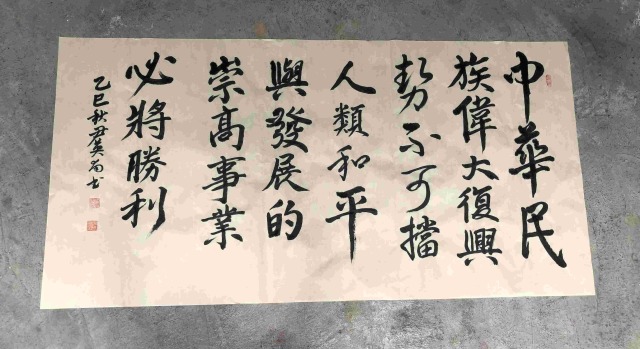 中華民
族偉大復興
勢不可擋
人類和平
與發展的
崇高事業
必將勝利
乙巳秋君英而书